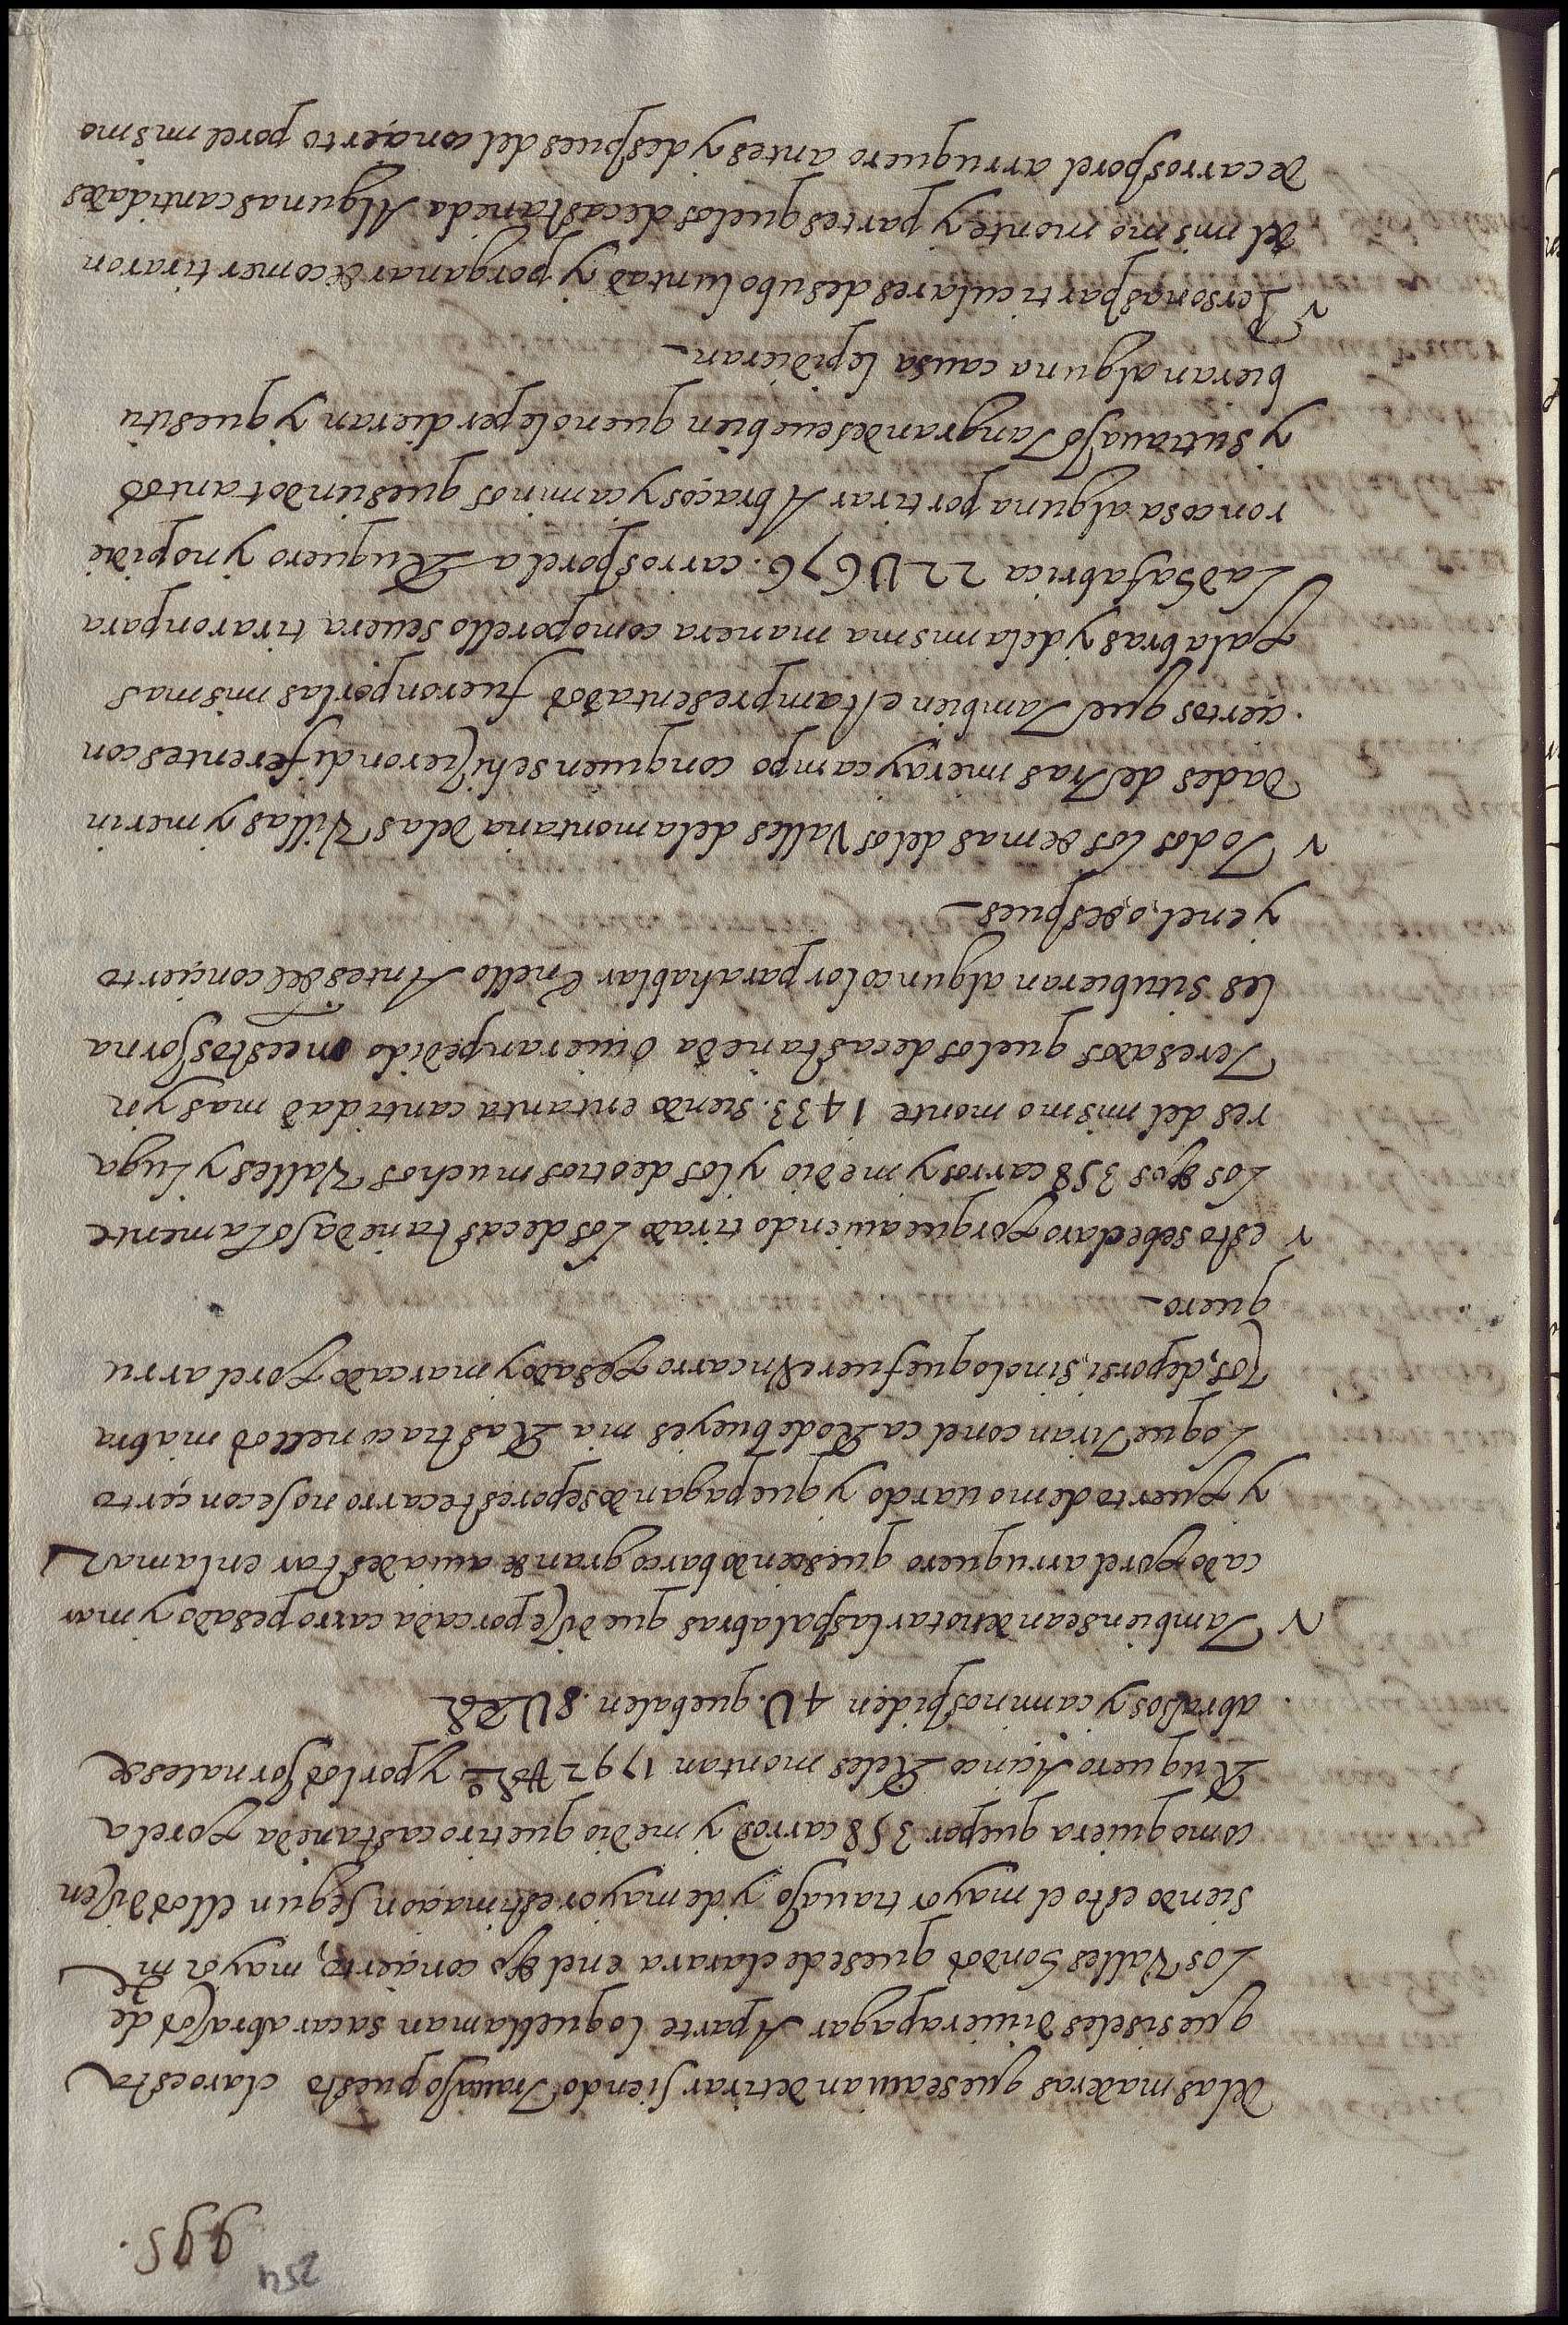 254
995.
delas maderas que seauian detirar siendo Trauajo puesto claro esta
que siseles Vuiera pagar Aparte loque llaman sacar abrasos de
Los Valles Sondos quese declarara enel dho concierto, mayor mte
siendo esto el mayor trauajo y demayor estimacion segun ellos disen
como quiera que por 358 carros y medio que tiro castañeda por el a
Ruquero Acinco Rles montan 1792 Rs y por los Jornales de
abrasos y caminos piden 4U. que balen 8U
v Tambien sean de notar las palabras que dise por cada carro pesado y mar
cado por el arruquero que siendo barco grande auia de estar en la mar
y Puerto de mouardo y que pagandose por este carro no se concerto
Lo que Tiran con el caRo de bueyes ni a Rastra con ellos ni abra
sos, de por si, sino lo que fuere Vn carro pesado y marcado por el arru
quero—
v esto sebe claro porque auiendo tirado Los de castañeda solamente
Los dhos 358 carros y medio y los de otros muchos Valles y Luga
res del mismo monte 1433. siendo en tanta cantidad mas yn
Teresados que los de castañeda Vuieran pedido estos Jorna
les si tubieran algun color para hablar En ello Antes del concierto
y en el, o, despues—
v Todos los demas de los Valles de la montaña de las Villas y merin
dades de Tras miera y campo con quien se hisieron diferentes con
ciertos que Tambien estan presentados fueron por las mismas
Palabras y de la misma manera como por ello se uera tiraron para
La dha fabrica 22U676. carros por el a Ruquero y no pidie
ron cosa alguna por tirar Abraços y caminos que siendo tantos
y su trauajo Tan grande se ue bien que no le perdieran y que si tu
bieran alguna causa le pidieran—
v Personas particulares de su boluntad y por ganar de comer tiraron
del mismo monte y partes que los de castañeda Algunas cantidades
de carros por el arruquero antes y despues del concierto por el mismo